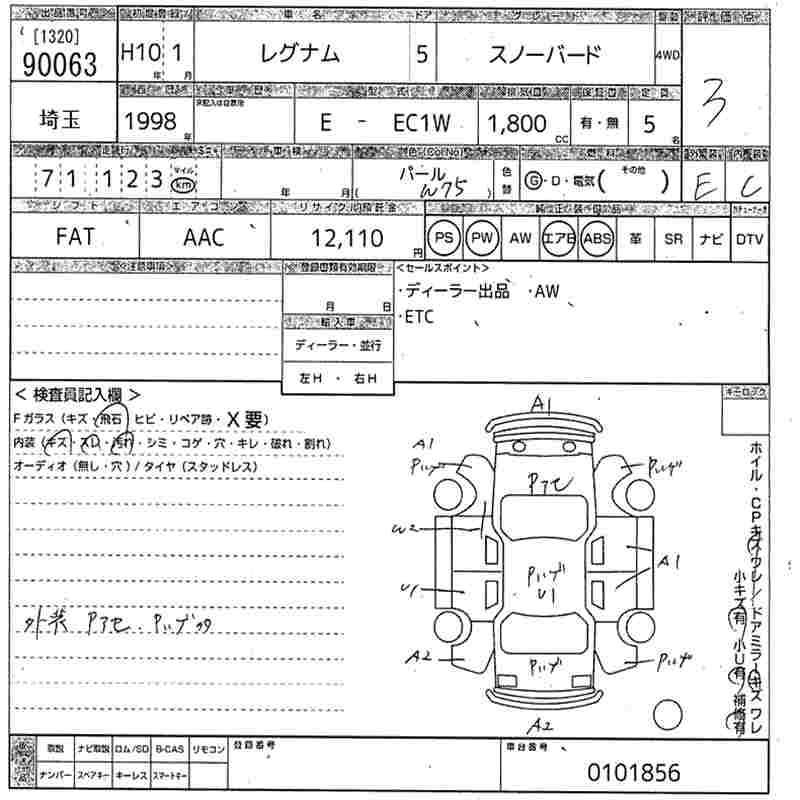 出品番号 初度登録 車名 ドア グレード 駆動 評価点
[1320]
90063 H10年 1月 レグナム 5 スノーバード 4WD 3
車歴 型式 排気量 定員
埼玉 1998年 E - EC1W 1,800cc 有・無 5名
走行 車検 色(Col No) 燃料 外装 内装
71 123 マイル km 年 月 パール W75 色替 G・D・電気(その他) E C
シフト エアコン リサイクル預託金
FAT AAC 12,110円 PS PW AW エアB ABS 革 SR ナビ DTV
<注意事項> 登録書類有効期限 <セールスポイント>
月 日 ・ディーラー出品 ・AW
輸入車 ・ETC
ディーラー・並行
左H ・ 右H
< 検査員記入欄 > キーロック
Fガラス(キズ・飛石 ヒビ・リペア跡・X要)
内装(キズ・スレ・汚れ・シミ・コゲ・穴・キレ・破れ・割れ)
オーディオ(無し・穴)/タイヤ(スタッドレス)
A1
A1
Pハゲ Pアセ Pハゲ
W2
A1
Pハゲ
U1 U1
外装 Pアセ・Pハゲ
A2 Pハゲ Pハゲ
A2
ホイル・CPキズワレ/ドアミラーキズワレ
小キズ有 小U有 補修有
取説 ナビ取説 ロム/SD B-CAS リモコン 登録番号 車台番号
ナンバー スペアキー キーレス スマートキー 0101856